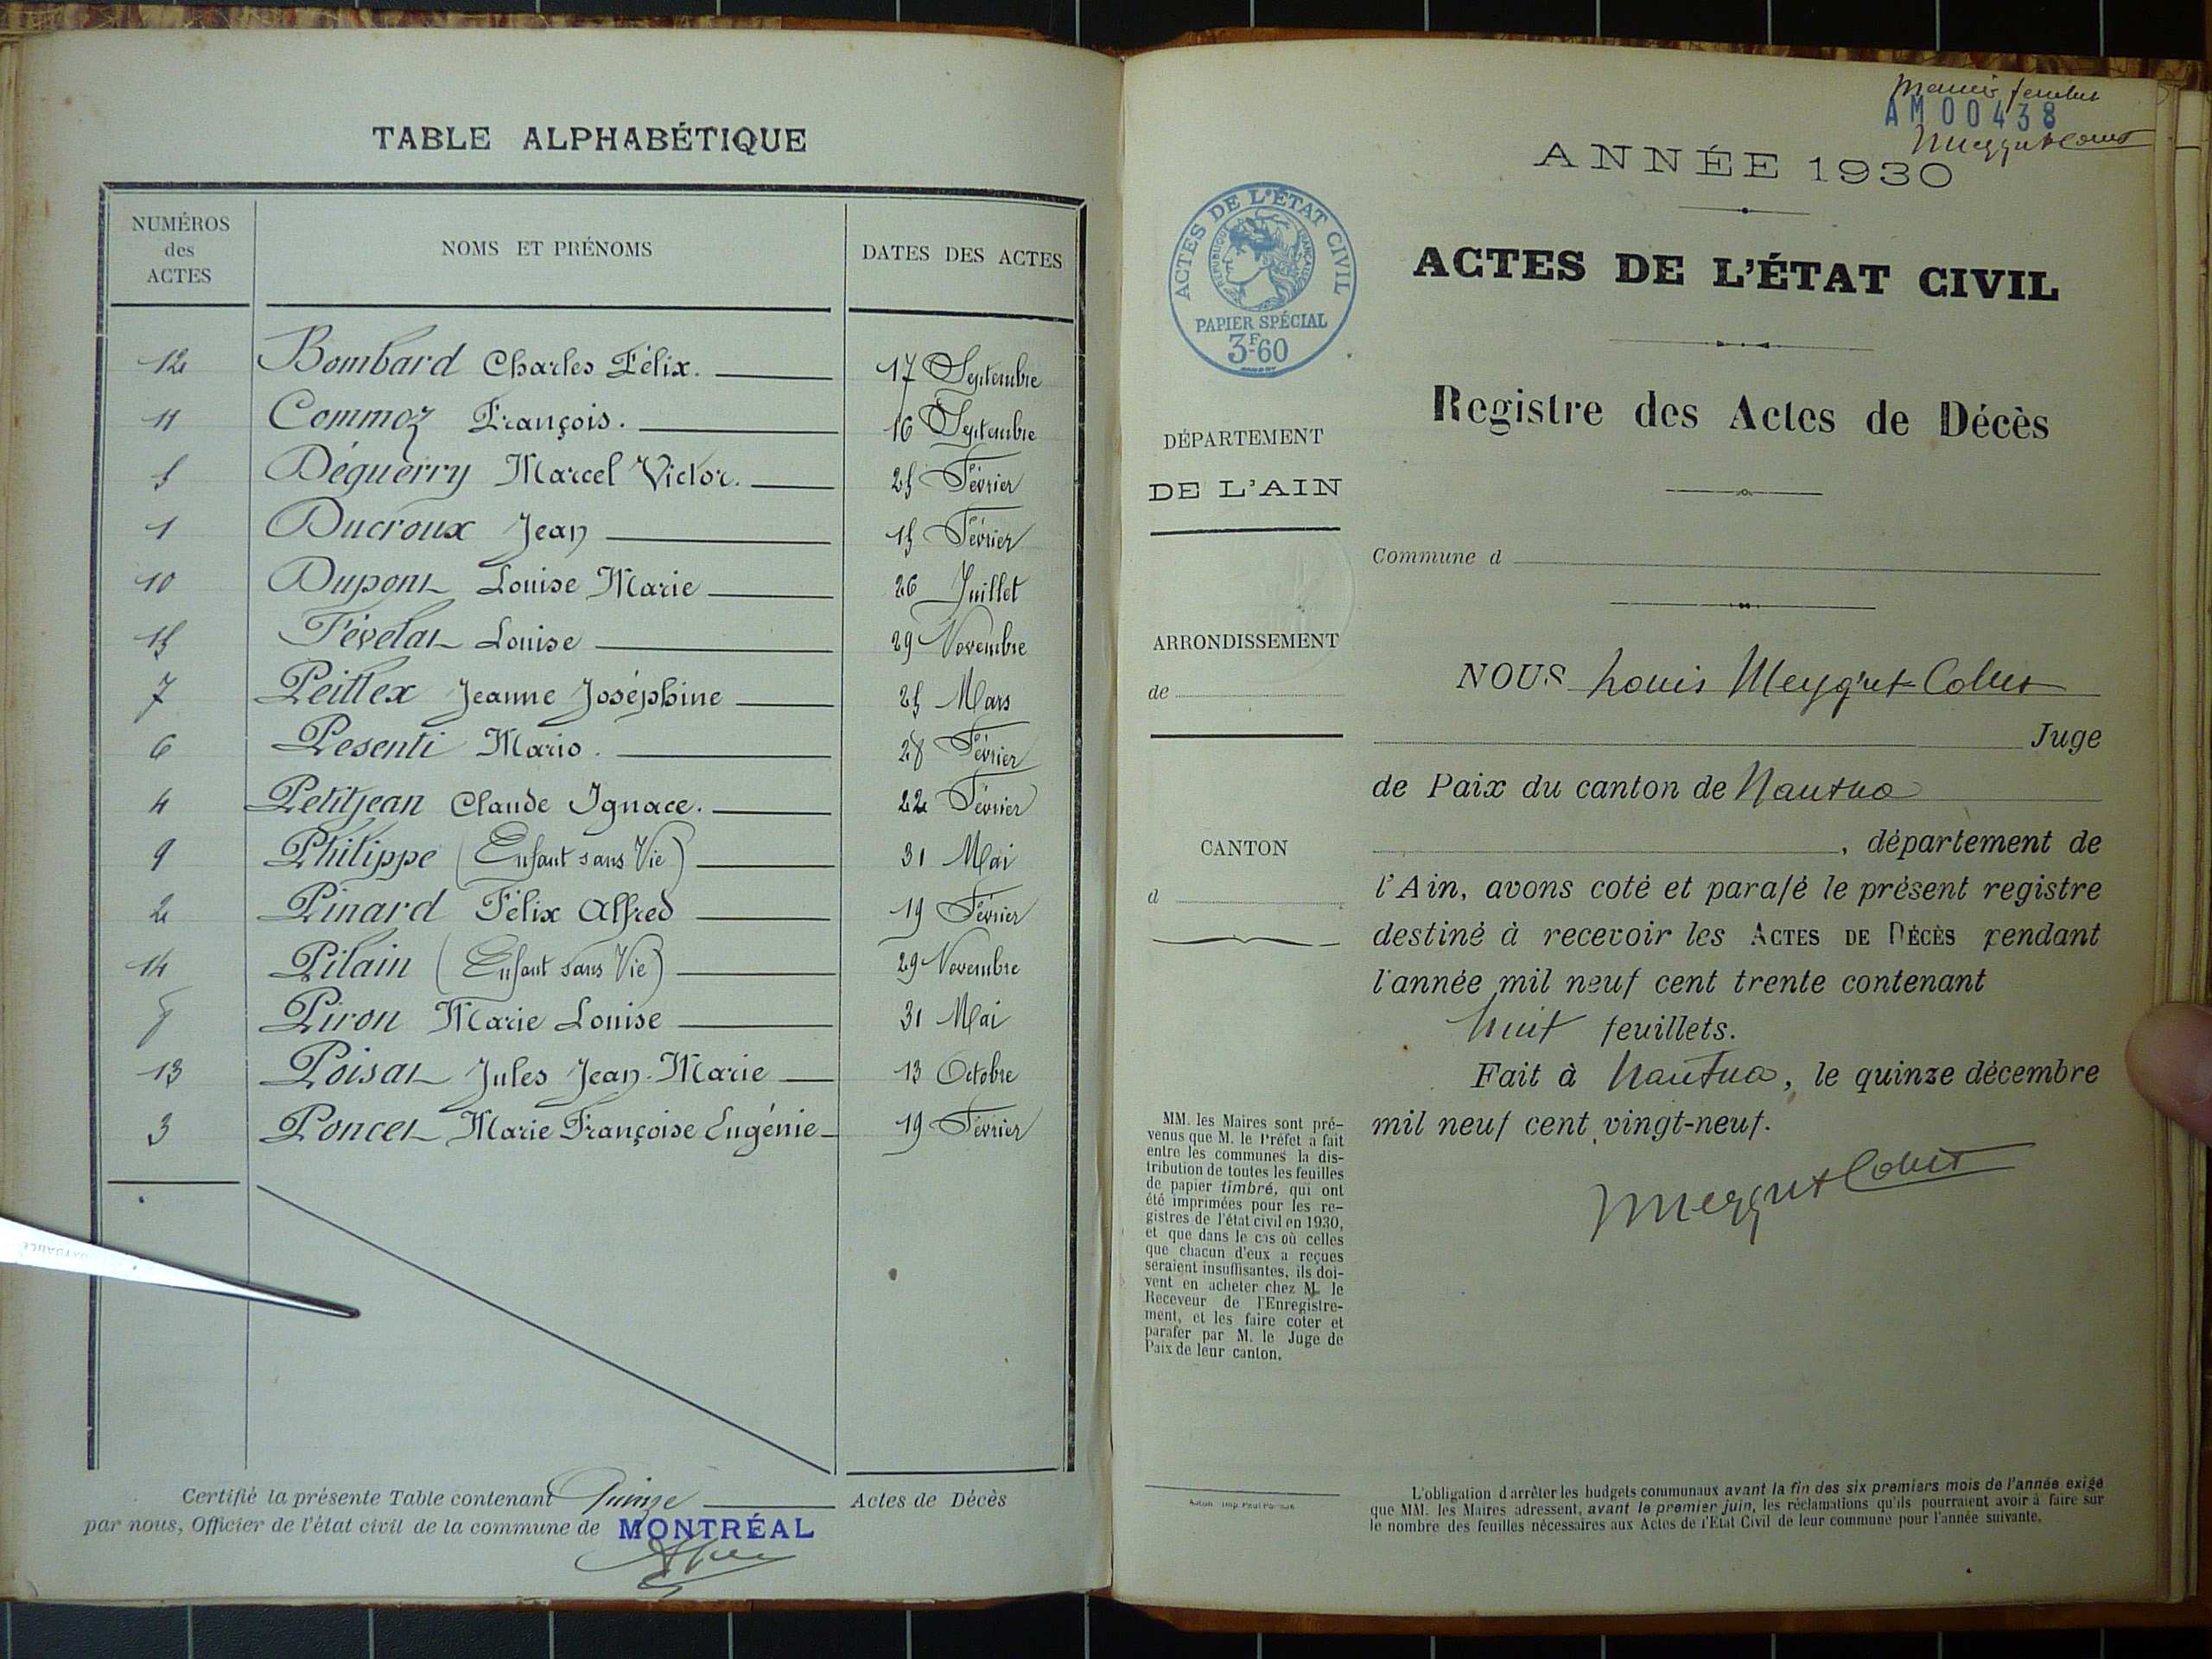 TABLE ALPHABÉTIQUE
NUMÉROS des ACTES NOMS ET PRÉNOMS DATES DES ACTES
12 Bombard Charles Félix. 17 Septembre
11 Commoz François. 16 Septembre
5 Déguerry Marcel Victor. 25 Février
1 Ducroux Jean 15 Février
10 Dupont Louise Marie 26 Juillet
15 Févelat Louise 29 Novembre
7 Peillex Jeanne Joséphine 25 Mars
6 Pesenti Mario. 28 Février
4 Petitjean Claude Ignace. 22 Février
9 Philippe (Enfant sans Vie) 31 Mai
2 Pinard Félix Alfred 19 Février
14 Pilain (Enfant sans Vie) 29 Novembre
8 Piron Marie Louise 31 Mai
13 Poisat Jules Jean-Marie 13 Octobre
3 Poncet Marie Françoise Eugénie 19 Février
Certifié la présente Table contenant Quinze Actes de Décès
par nous, Officier de l'état civil de la commune de MONTRÉAL
AM00438
ANNÉE 1930
ACTES DE L'ÉTAT CIVIL
RÉPUBLIQUE FRANÇAISE
PAPIER SPÉCIAL
3F60
ACTES DE L'ÉTAT CIVIL
Registre des Actes de Décès
DÉPARTEMENT
DE L'AIN
Commune d
ARRONDISSEMENT
de
CANTON
d
NOUS Louis
Juge
de Paix du canton de Nantua
, département de
l'Ain, avons coté et parafé le présent registre
destiné à recevoir les ACTES DE DÉCÈS pendant
l'année mil neuf cent trente contenant
huit feuillets.
Fait à Nantua, le quinze décembre
mil neuf cent vingt-neuf.
MM. les Maires sont pré-
venus que M. le Préfet a fait
entre les communes la dis-
tribution de toutes les feuilles
de papier timbré, qui ont
été imprimées pour les re-
gistres de l'état civil en 1930,
et que dans le cas où celles
que chacun d'eux a reçues
seraient insuffisantes, ils doi-
vent en acheter chez M. le
Receveur de l'Enregistre-
ment, et les faire coter et
parafer par M. le Juge de
Paix de leur canton.
L'obligation d'arrêter les budgets communaux avant la fin des six premiers mois de l'année exige
que MM. les Maires adressent, avant le premier juin, les réclamations qu'ils pourraient avoir à faire sur
le nombre des feuilles nécessaires aux Actes de l'État Civil de leur commune pour l'année suivante.